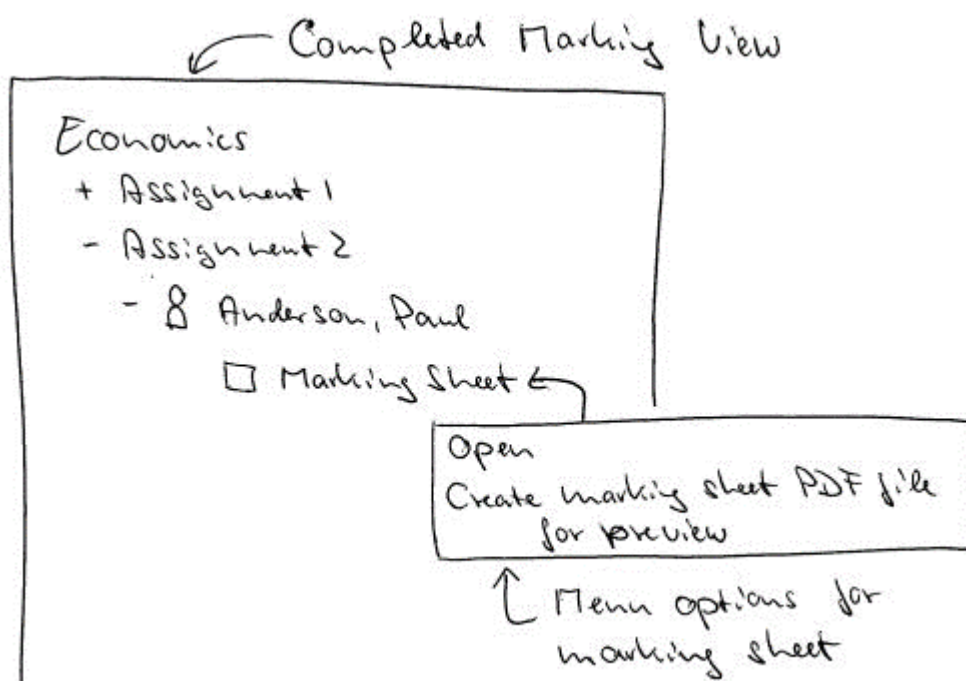 Completed Marking View
Economics
+ Assignment 1
- Assignment 2
- Anderson, Paul
Marking Sheet
Open
Create marking sheet PDF file
for preview
Menu options for
marking sheet